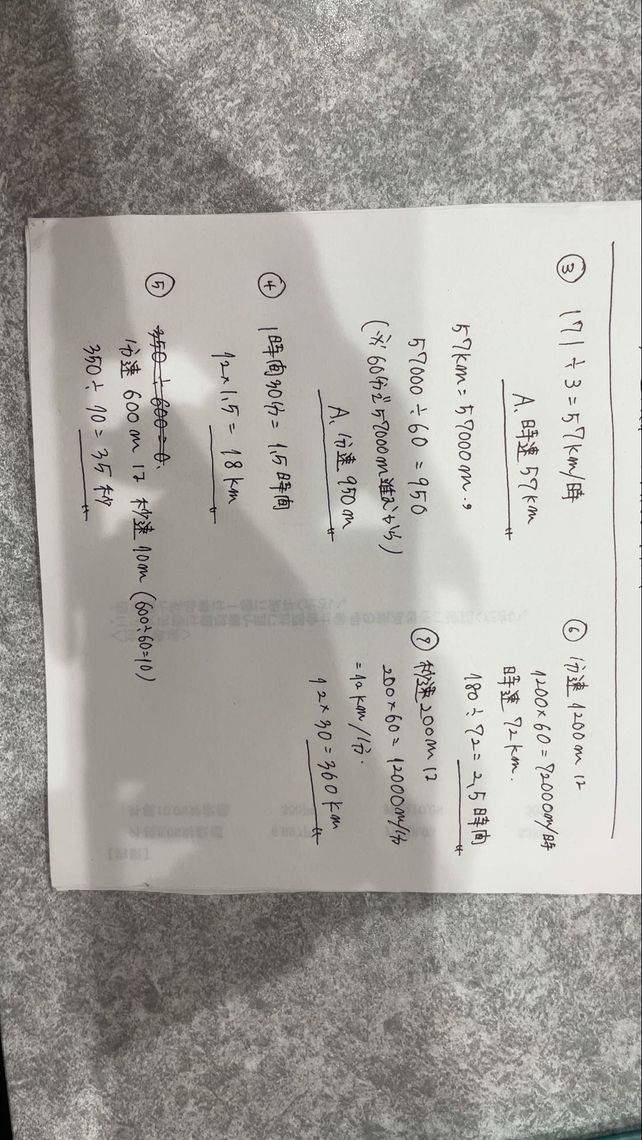 ③ 171÷3=57km/時
A. 時速57km
57km=57000m.,
57000÷60=950
(※60分で57000m進むから)
A. 分速950m
④ 1時間30分=1.5時間
12×1.5=18km
⑤ 350÷600=0.
分速600mは 秒速10m (600÷60=10)
350÷10=35秒
⑥ 分速1200mは
1200×60=72000m/時
時速72km.
180÷72=2.5時間
⑦ 秒速200mは
200×60=12000m/分
=12km/分.
12×30=360km